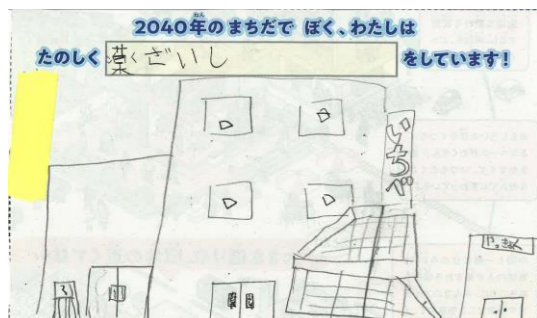 2040年のまちだで ぼく、わたしは
たのしく 薬ざいし をしています!
いちべ